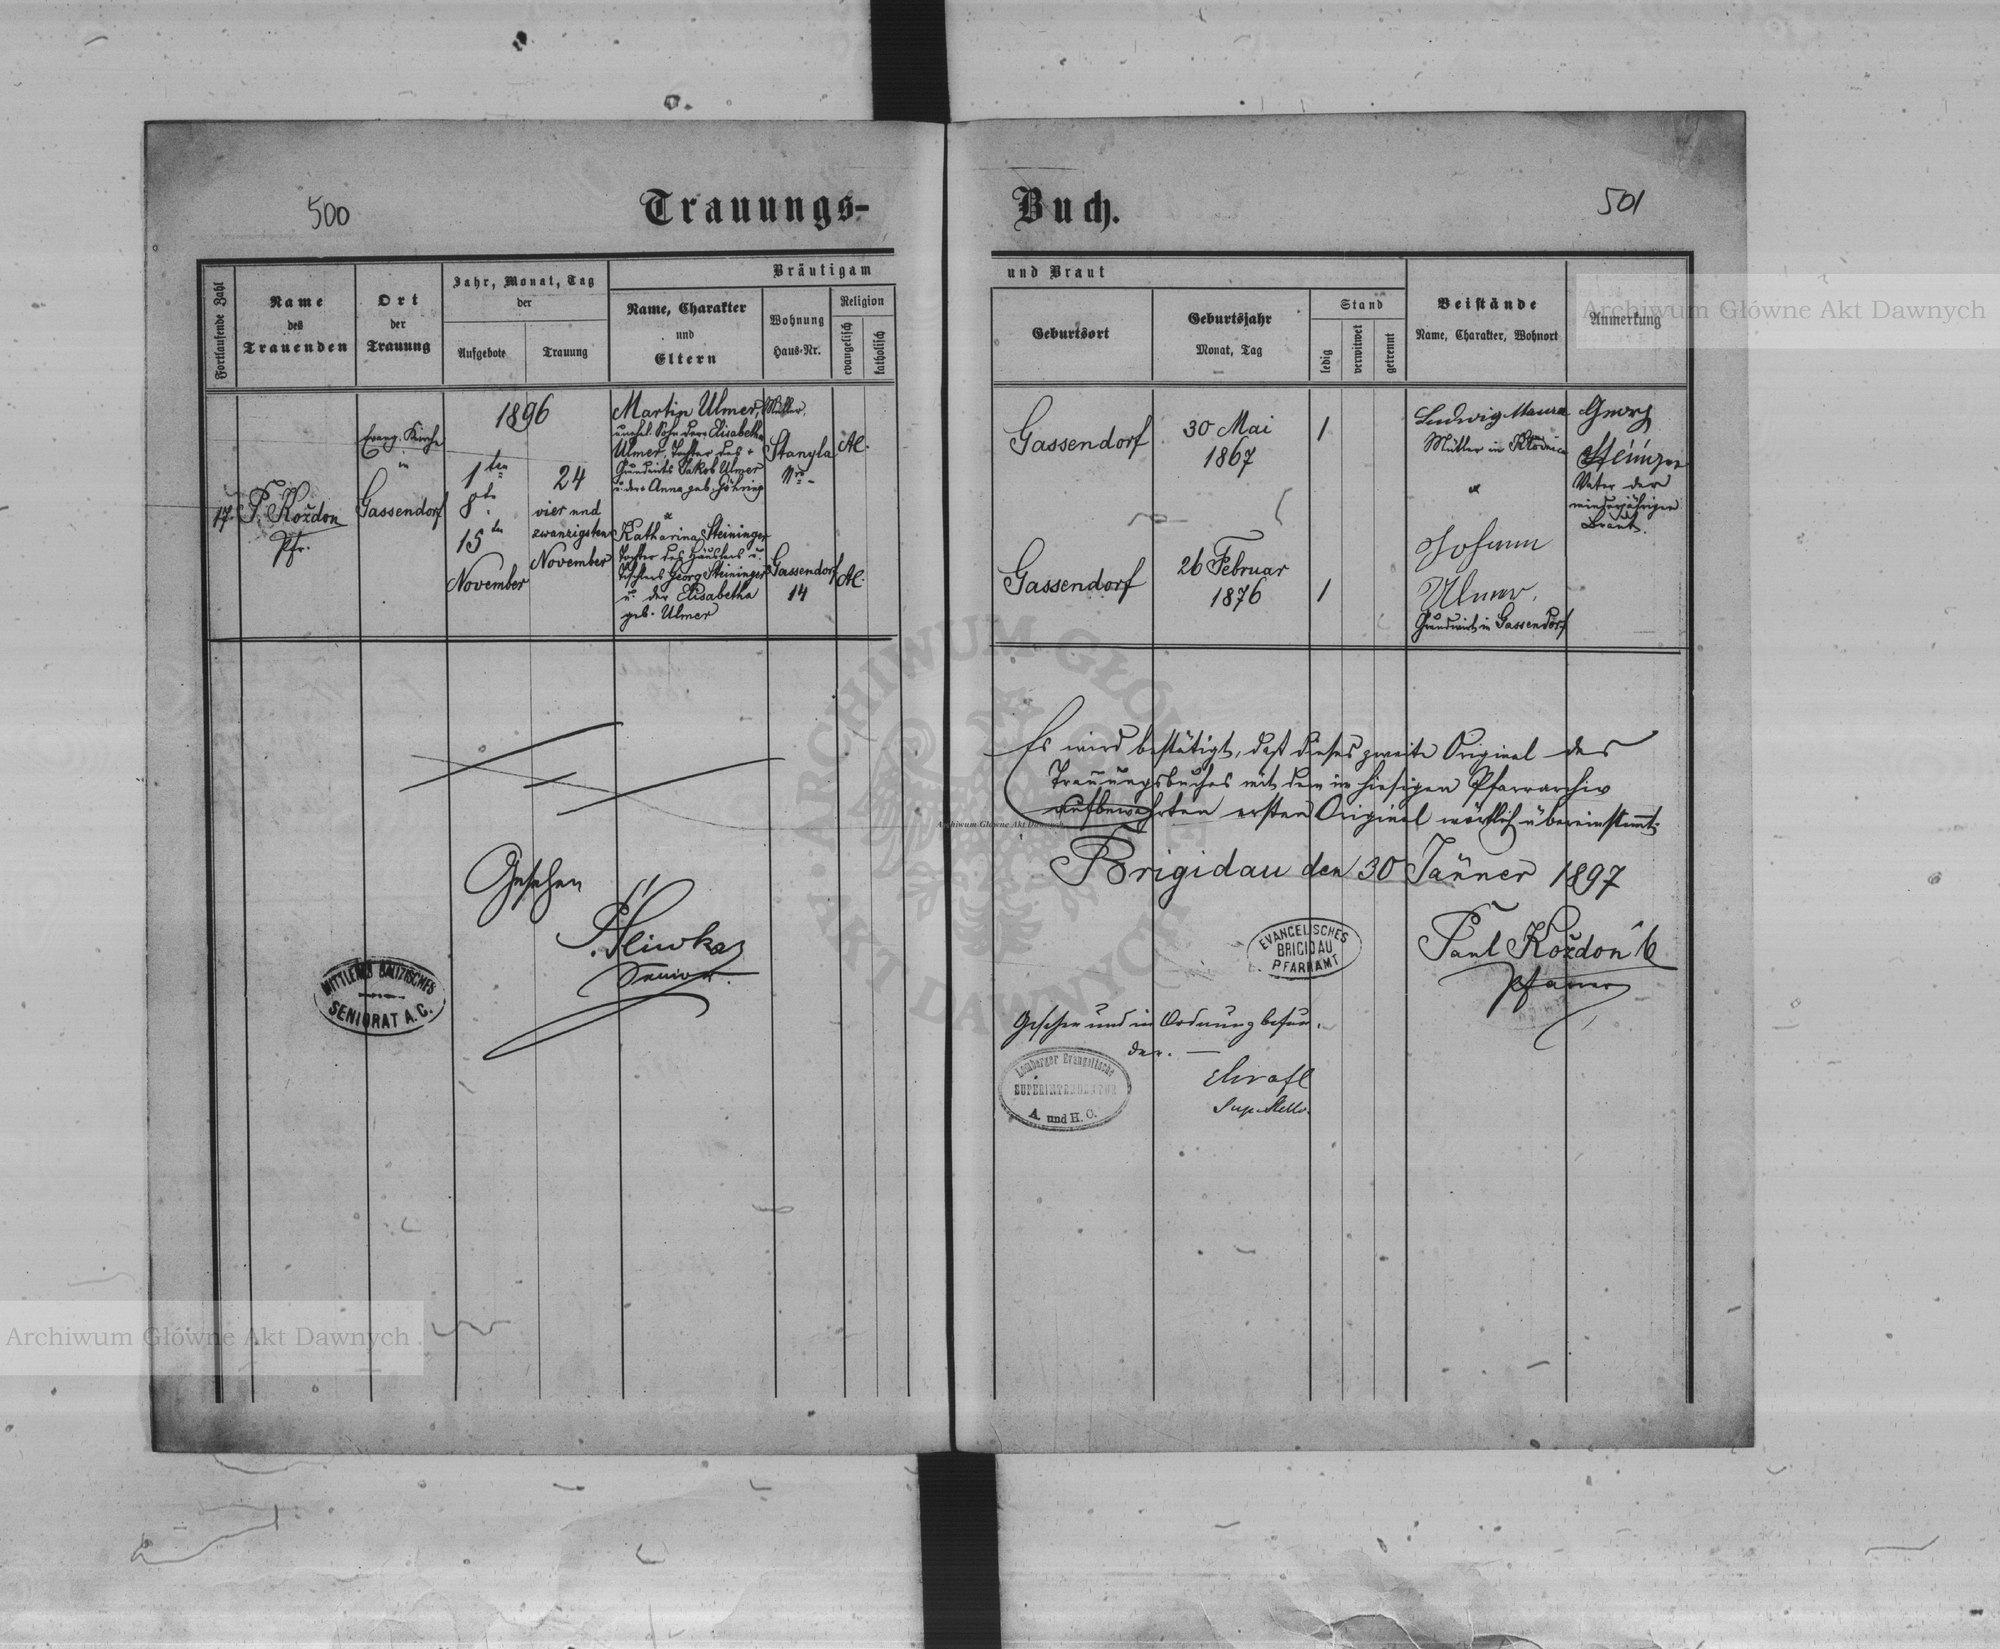 500
Trauungs-
Buch.
501
Fortlaufende Zahl
Name
des
Trauenden
Ort
der
Trauung
Jahr, Monat, Tag
der
Aufgebote
Trauung
Bräutigam
Name, Charakter
und
Eltern
Wohnung
Haus-Nr.
Religion
evangelisch
katholisch
und Braut
Geburtsort
Geburtsjahr
Monat, Tag
Stand
ledig
verwitwet
getrennt
Beistände
Name, Charakter, Wohnort
Anmerkung
17.
P. Koždon
Pfr.
Evang. Kirche
in
Gassendorf
1896
1ten
8te
15ten
November
24
vier und
zwanzigsten
November
Martin Ulmer, Müller,
unehel. Sohn der Elisabetha
Ulmer, Tochter des
Grundwirts Jakob Ulmer
u. der Anna geb. Göhring
Katharina Steininger
Tochter des Häuslers u.
Tischlers Georg Steininger
u. der Elisabetha
geb. Ulmer
Stanyla
Nro -
Gassendorf
14
AC.
AC.
Gassendorf
30 Mai
1867
1
Gassendorf
26 Februar
1876
1
Ludwig
Müller in
Johann
Ulmer,
Grundwirt in Gassendorf
Georg
Vater der
minderjährigen
Braut.
Es wird bestätigt, daß dieses zweite Original des
Trauungsbuches mit dem im hiesigen Pfarrarchiv
aufbewahrten ersten Original wörtlich übereinstimmt.
Brigidau den 30 Jänner 1897
EVANGELISCHES
BRIGIDAU
PFARRAMT
Paul Koždon
Pfarrer
Gesehen
Senior.
SENIORAT A. C.
Gesehen und in Ordnung befun-
den. —
Lemberger Evangelische
SUPERINTENDENTUR
A. und H. C.
Archiwum Główne Akt Dawnych
Archiwum Główne Akt Dawnych
Archiwum Główne Akt Dawnych
ARCHIWUM GŁÓWNE
AKT DAWNYCH